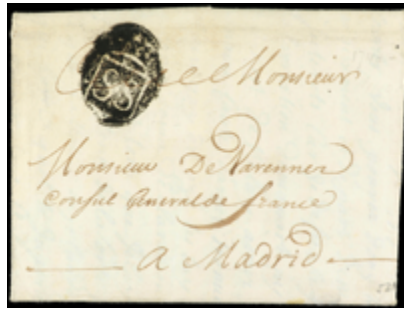 A Monsieur
Monsieur De Varennes
Consul General de france
a Madrid